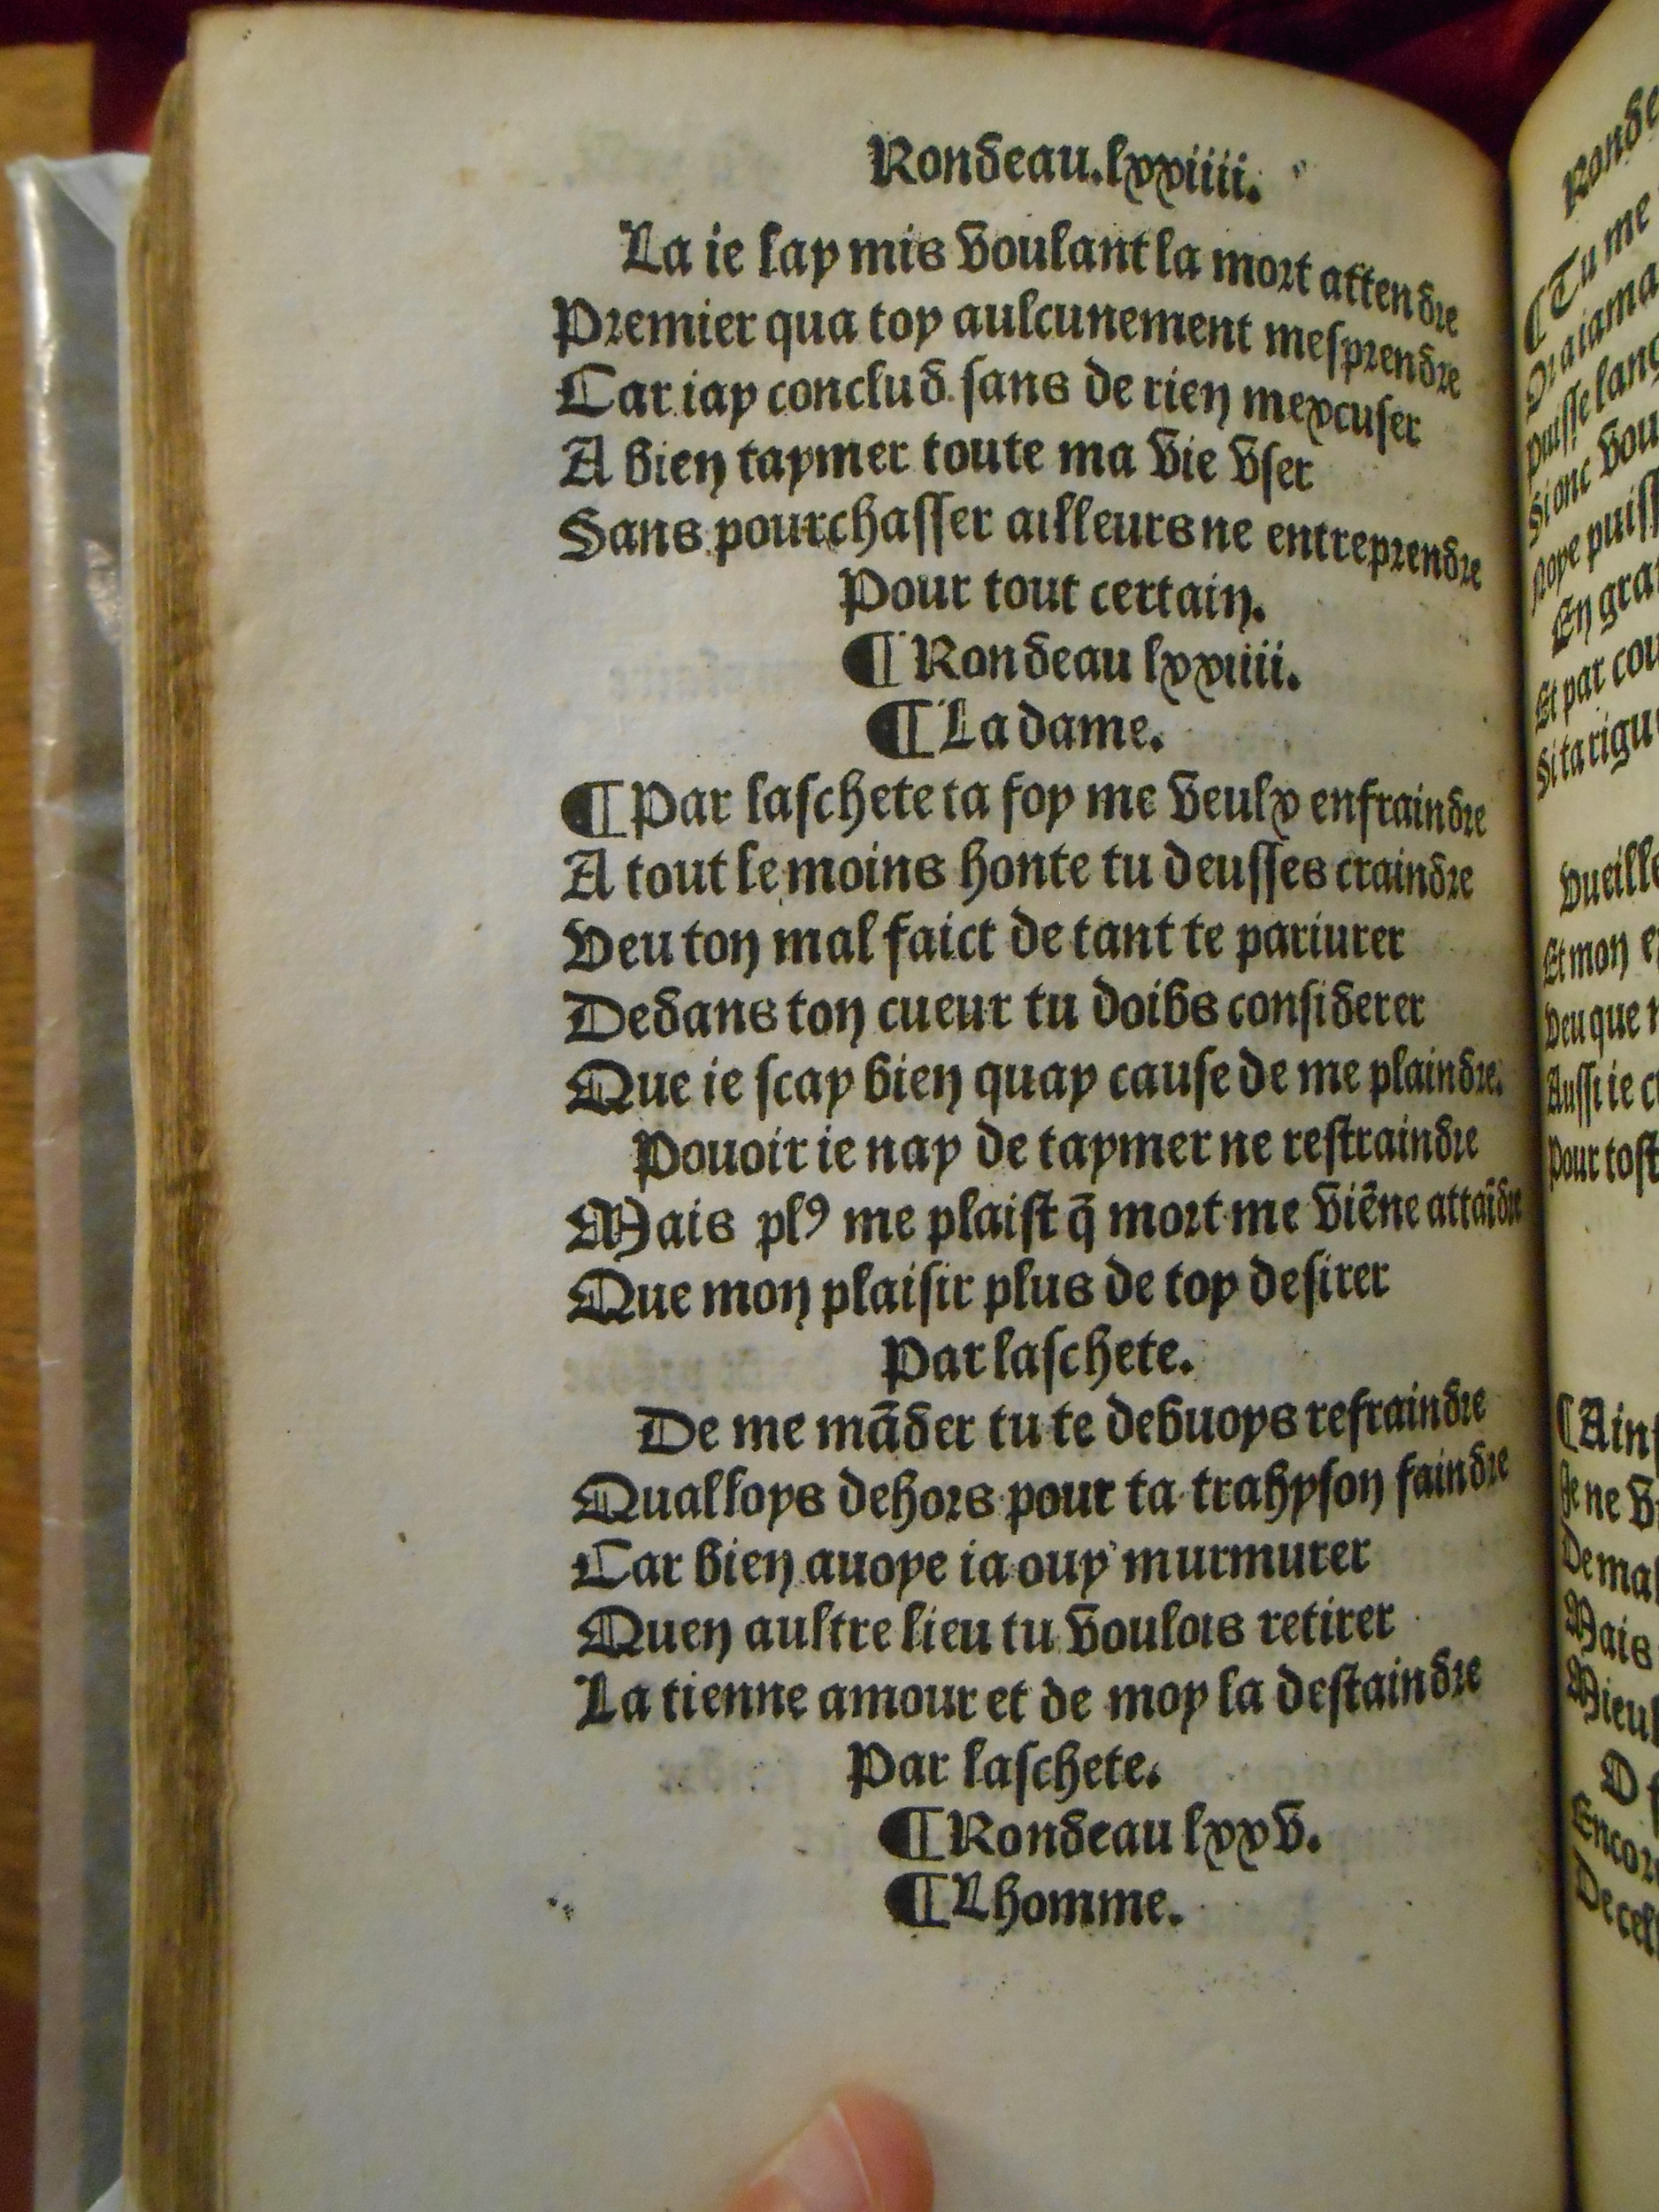 Rondeau.lxxiiii.
La ie lay mis voulant la mort attendre
Premier qua toy aulcunement mesprendre
Car iay conclud sans de rien mexcuser
A bien taymer toute ma vie vser
Sans pourchasser ailleurs ne entreprendre
Pour tout certain.
¶ Rondeau lxxiiii.
¶ La dame.
¶ Par laschete ta foy me veulx enfraindre
A tout le moins honte tu deusses craindre
Veu ton mal faict de tant te pariurer
Dedans ton cueur tu doibs considerer
Que ie scay bien quay cause de me plaindre.
Pouoir ie nay de taymer ne restraindre
Mais plꝰ me plaist q̄ mort me viẽne attaĩdre
Que mon plaisir plus de toy desirer
Par laschete.
De me mãder tu te debuoys refraindre
Qualloys dehors pour ta trahyson faindre
Car bien auoye ia ouy murmurer
Quen aultre lieu tu voulois retirer
La tienne amour et de moy la destaindre
Par laschete.
¶ Rondeau lxxv.
¶ Lhomme.
Ronde
¶ Tu me
Or aiama
Puisse lang
Si onc vou
En gra
Et par cou
Si ta rigu
Vueille
Et mon
Veu que
Aussi ie
Pour tost
¶ Ain
Je ne
De mal
Mais
Mieul
O
Encor
De cel